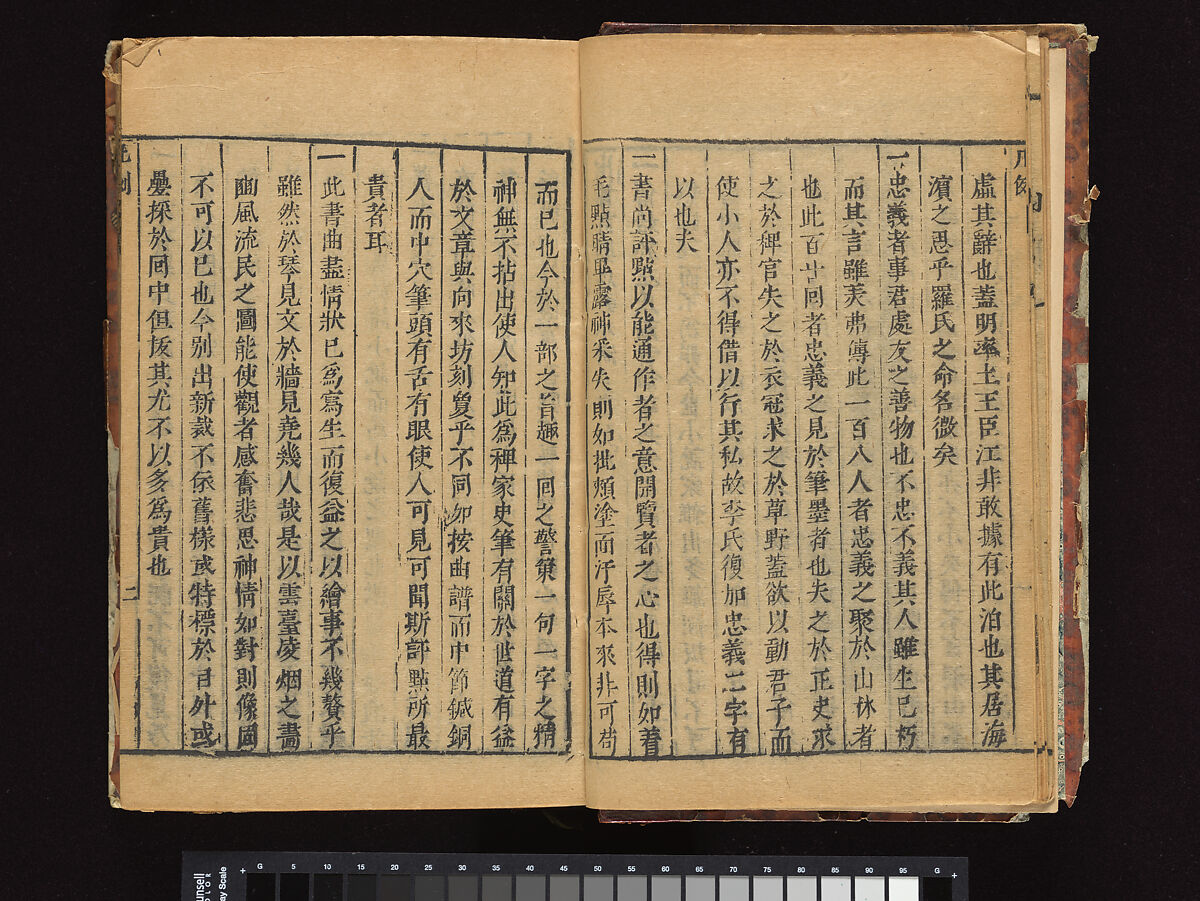 虛其辭也蓋明率土王臣江非敢據有此泊也其居海
濵之思乎羅氏之命名微矣
一忠義者事君處友之善物也不忠不義其人雖生已朽
而其言雖美弗傳此一百八人者忠義之聚於山林者
也此百廿回者忠義之見於筆墨者也失之於正史求
之於稗官失之於衣冠求之於草野蓋欲以動君子而
使小人亦不得借以行其私故李氏復加忠義二字有
以也夫
一書尚評點以能通作者之意開覽者之心也得則如着
毛點睛畢露神采失則如批頰塗面汙辱本來非可苟
而已也今於一部之旨趣一回之警策一句一字之精
神無不拈出使人知此為稗家史筆有關於世道有益
於文章與向來坊刻夐乎不同如按曲譜而中節鍼銅
人而中穴筆頭有舌有眼使人可見可聞斯評點所最
貴者耳
一此書曲盡情狀已為寫生而復益之以繪事不幾贅乎
雖然於琴見文於牆見堯幾人哉是以雲臺凌烟之畵
豳風流民之圖能使觀者感奮悲思神情如對則像固
不可以已也今別出新裁不依舊樣或特標於目外或
疊採於回中但拔其尤不以多為貴也
二
G 5 10 15 20 25 30 35 40 45 50 55 60 65 70 75 80 85 90 95 G